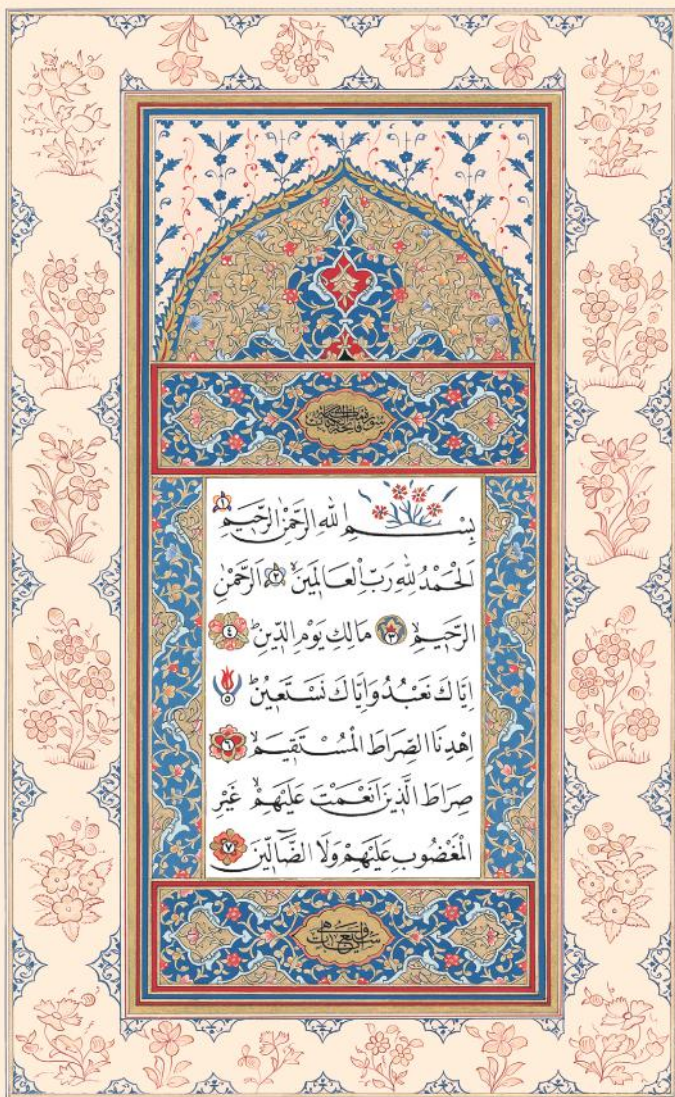 سورة فاتحة الكتاب
بِسْمِ اللهِ الرَّحْمٰنِ الرَّحٖيمِ ١
اَلْحَمْدُ لِلهِ رَبِّ الْعَالَمٖينَۙ ٢ اَلرَّحْمٰنِ
الرَّحٖيمِۙ ٣ مَالِكِ يَوْمِ الدّٖينِؕ ٤
اِيَّاكَ نَعْبُدُ وَاِيَّاكَ نَسْتَعٖينُؕ ٥
اِهْدِنَا الصِّرَاطَ الْمُسْتَقٖيمَۙ ٦
صِرَاطَ الَّذٖينَ اَنْعَمْتَ عَلَيْهِمْۙ غَيْرِ
الْمَغْضُوبِ عَلَيْهِمْ وَلَا الضَّٓالّٖينَ ٧